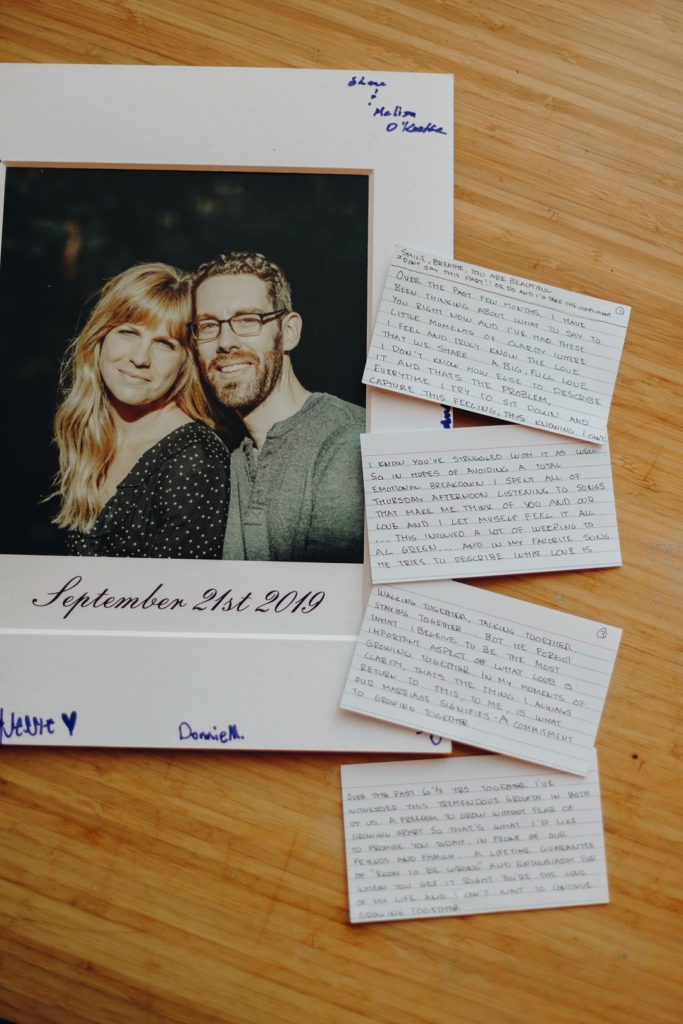 Shane
&
Melissa
O'Keeffe
September 21st 2019
Nellie ♥
DonnieM.
SMILE, BREATHE, YOU ARE BEAUTIFUL
DONT SAY THIS PART!! OR DO AND I'LL TAKE THE COMPLIMENT
1
OVER THE PAST FEW MONTHS, I HAVE
BEEN THINKING ABOUT WHAT TO SAY TO
YOU RIGHT NOW AND I'VE HAD THESE
LITTLE MOMENTS OF CLARITY WHERE
I FEEL AND TRULY KNOW THE LOVE
THAT WE SHARE. A BIG, FULL LOVE
I DON'T KNOW HOW ELSE TO DESCRIBE
IT. AND THATS THE PROBLEM,
EVERYTIME I TRY TO SIT DOWN AND
CAPTURE THIS FEELING, THIS KNOWING I CAN'T
I KNOW YOU'VE STRUGGLED WITH IT AS WELL
SO IN HOPES OF AVOIDING A TOTAL
EMOTIONAL BREAKDOWN I SPENT ALL OF
THURSDAY AFTERNOON LISTENING TO SONGS
THAT MAKE ME THINK OF YOU AND OUR
LOVE AND I LET MYSELF FEEL IT ALL
... THIS INVOLVED A LOT OF WEEPING TO
AL GREEN... AND IN MY FAVORITE SONG
HE TRIES TO DESCRIBE WHAT LOVE IS
3
WALKING TOGETHER, TALKING TOGETHER,
STAYING TOGETHER... BUT HE FORGOT
WHAT I BELIEVE TO BE THE MOST
IMPORTANT ASPECT OF WHAT LOVE IS:
GROWING TOGETHER. IN MY MOMENTS OF
CLARITY, THATS THE THING I ALWAYS
RETURN TO. THIS, TO ME, IS WHAT
OUR MARRIAGE SIGNIFIES - A COMMITMENT
TO GROWING TOGETHER
OVER THE PAST 6 1/2 YRS TOGETHER I'VE
WITNESSED THIS TREMENDOUS GROWTH IN BOTH
OF US. A FREEDOM TO GROW WITHOUT FEAR OF
GROWING APART. SO THAT'S WHAT I'D LIKE
TO PROMISE YOU TODAY. IN FRONT OF OUR
FRIENDS AND FAMILY... A LIFETIME GUARANTEE
OF "ROOM TO BE WRONG" AND ENTHUSIASM FOR
WHEN YOU GET IT RIGHT. YOU'RE THE LOVE
OF MY LIFE AND I CAN'T WAIT TO CONTINUE
GROWING TOGETHER